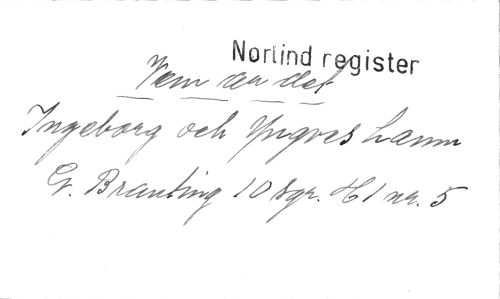 Norlind register
Vem är det
Ingeborg och Yngves hamn
G. Branting 10 sgr. H1 nr. 5